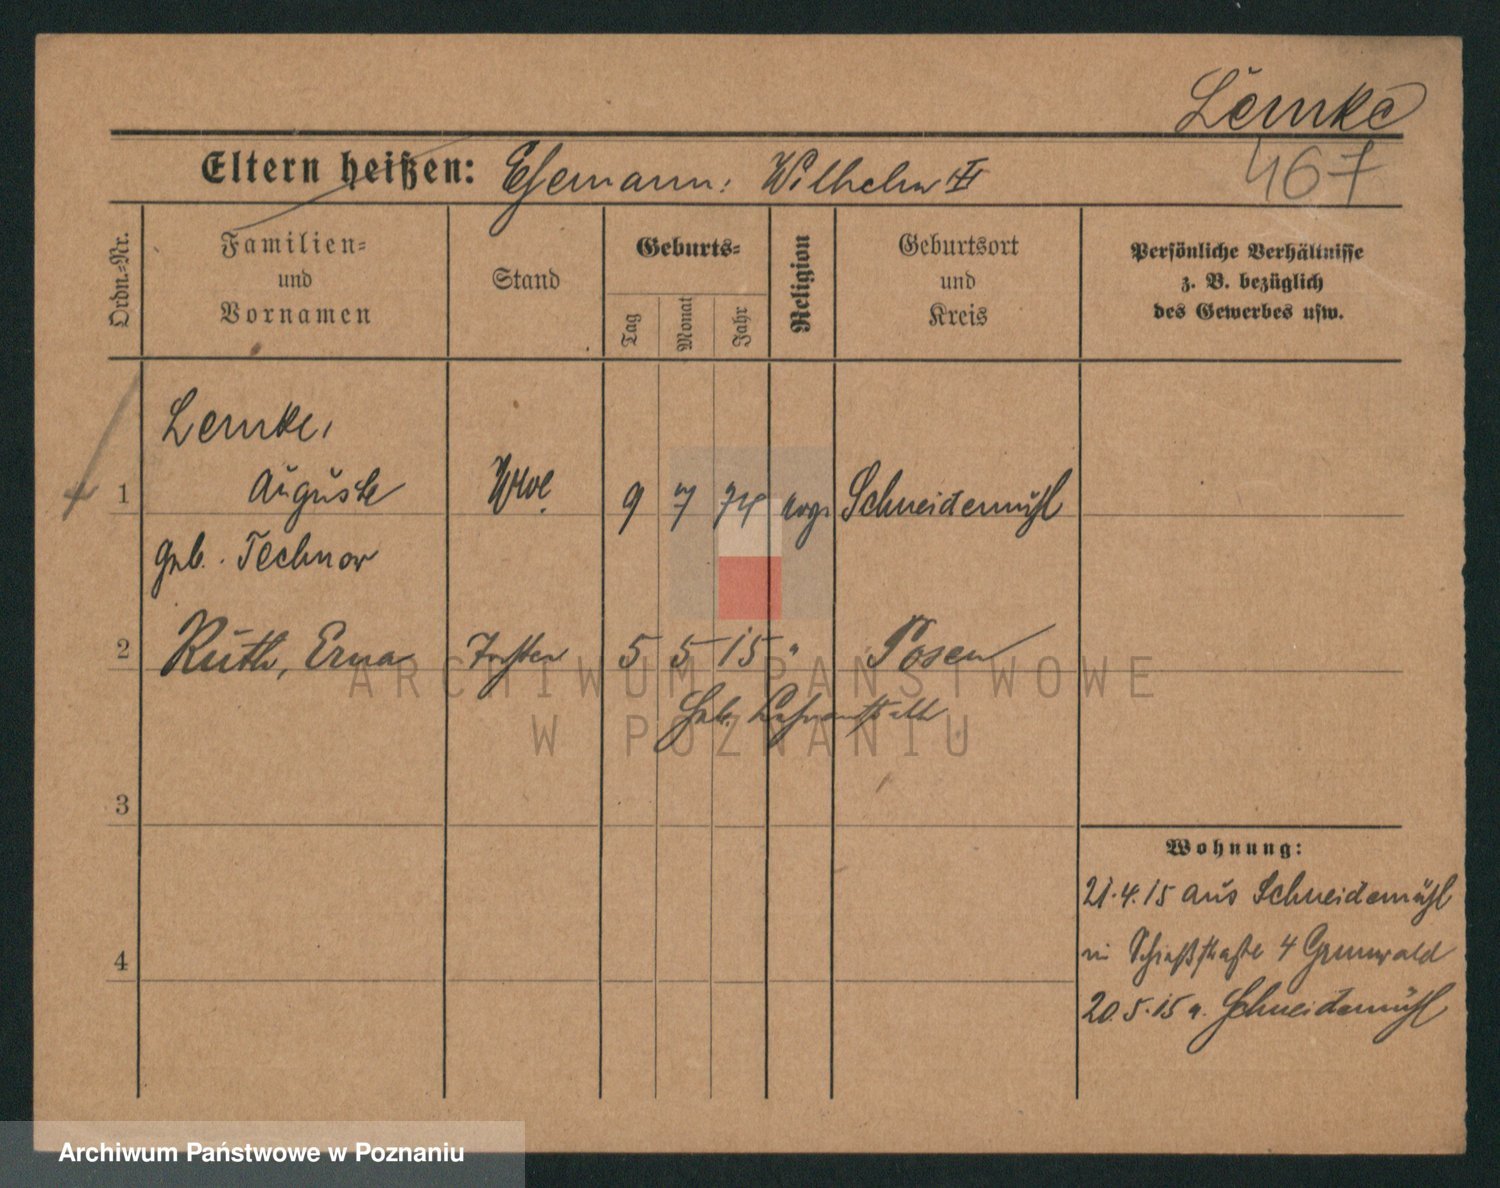 Lemke
467
Eltern heißen: Ehemann: Wilhelm II
Ordn.-Nr.
Familien-
und
Vornamen
Stand
Geburts-
Tag
Monat
Jahr
Religion
Geburtsort
und
Kreis
Persönliche Verhältnisse
z. B. bezüglich
des Gewerbes usw.
Lemke,
1 Auguste Wwe. 9 7 74 Schneidemühl
geb. Technow
2 Ruth, Erna Tochter 5 5 15 " Posen
Heb. Lehranstalt
3
4
Wohnung:
21.4.15 aus Schneidemühl
in 4 Grunwald
20.5.15 n. Schneidemühl
ARCHIWUM PAŃSTWOWE
W POZNANIU
Archiwum Państwowe w Poznaniu